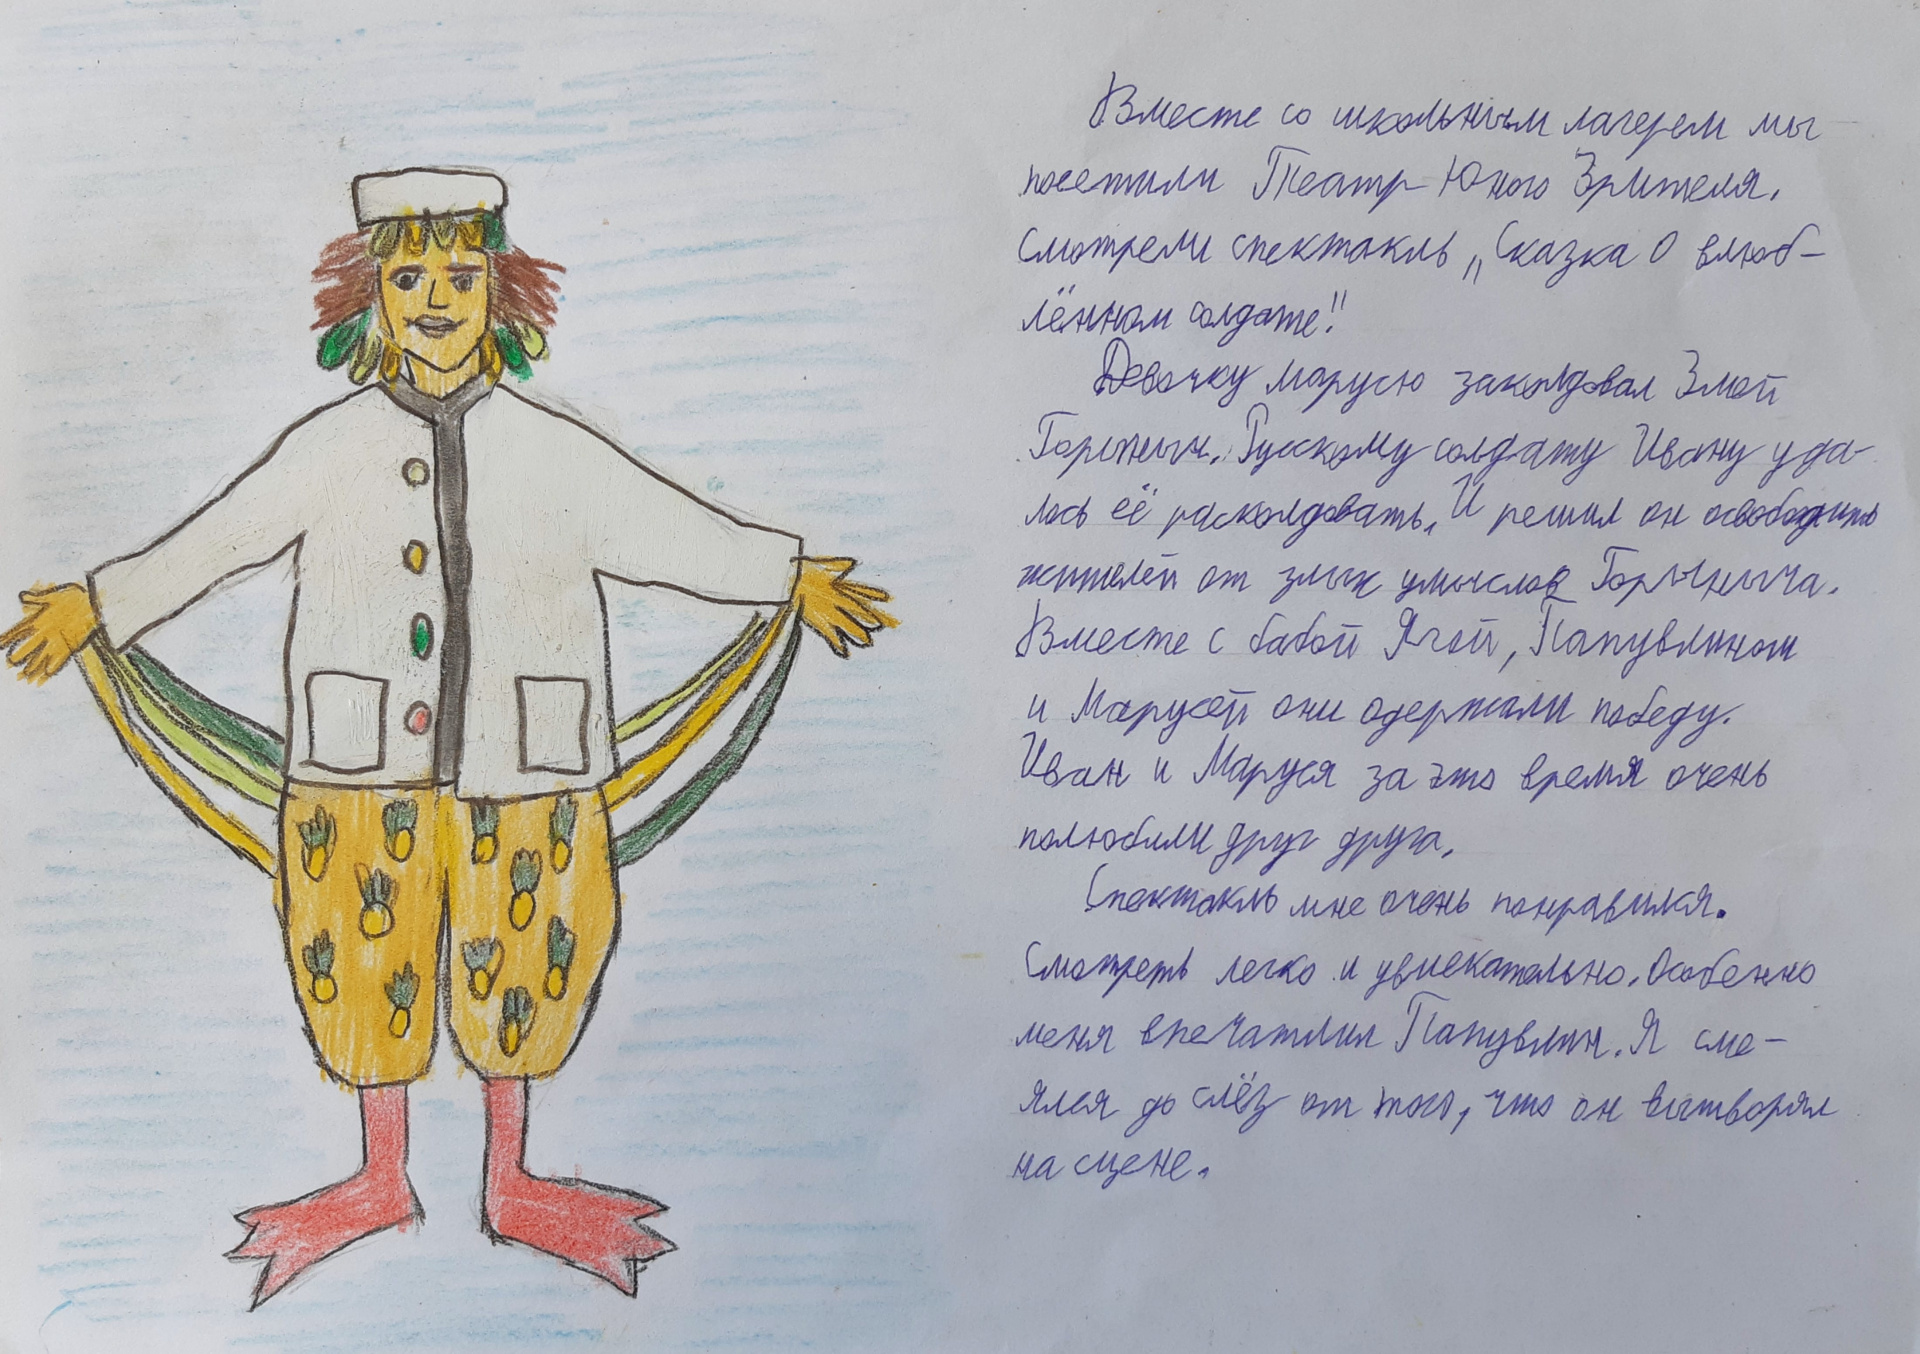 Вместе со школьным лагерем мы
посетили Театр Юного Зрителя.
Смотрели спектакль „Сказка О влюб-
лённом солдате!!
Девочку Марусю заколдовал Змей
Горыныч. Русскому солдату Ивану уда-
лось её расколдовать. И решил он освободить
жителей от злых умыслов Горыныча.
Вместе с бабой Ягой, Папувлином
и Марусей они одержали победу.
Иван и Маруся за это время очень
полюбили друг друга.
Спектакль мне очень понравился.
Смотреть легко и увлекательно. Особенно
меня впечатлил Папувлин. Я сме-
ялся до слёз от того, что он вытворял
на сцене.